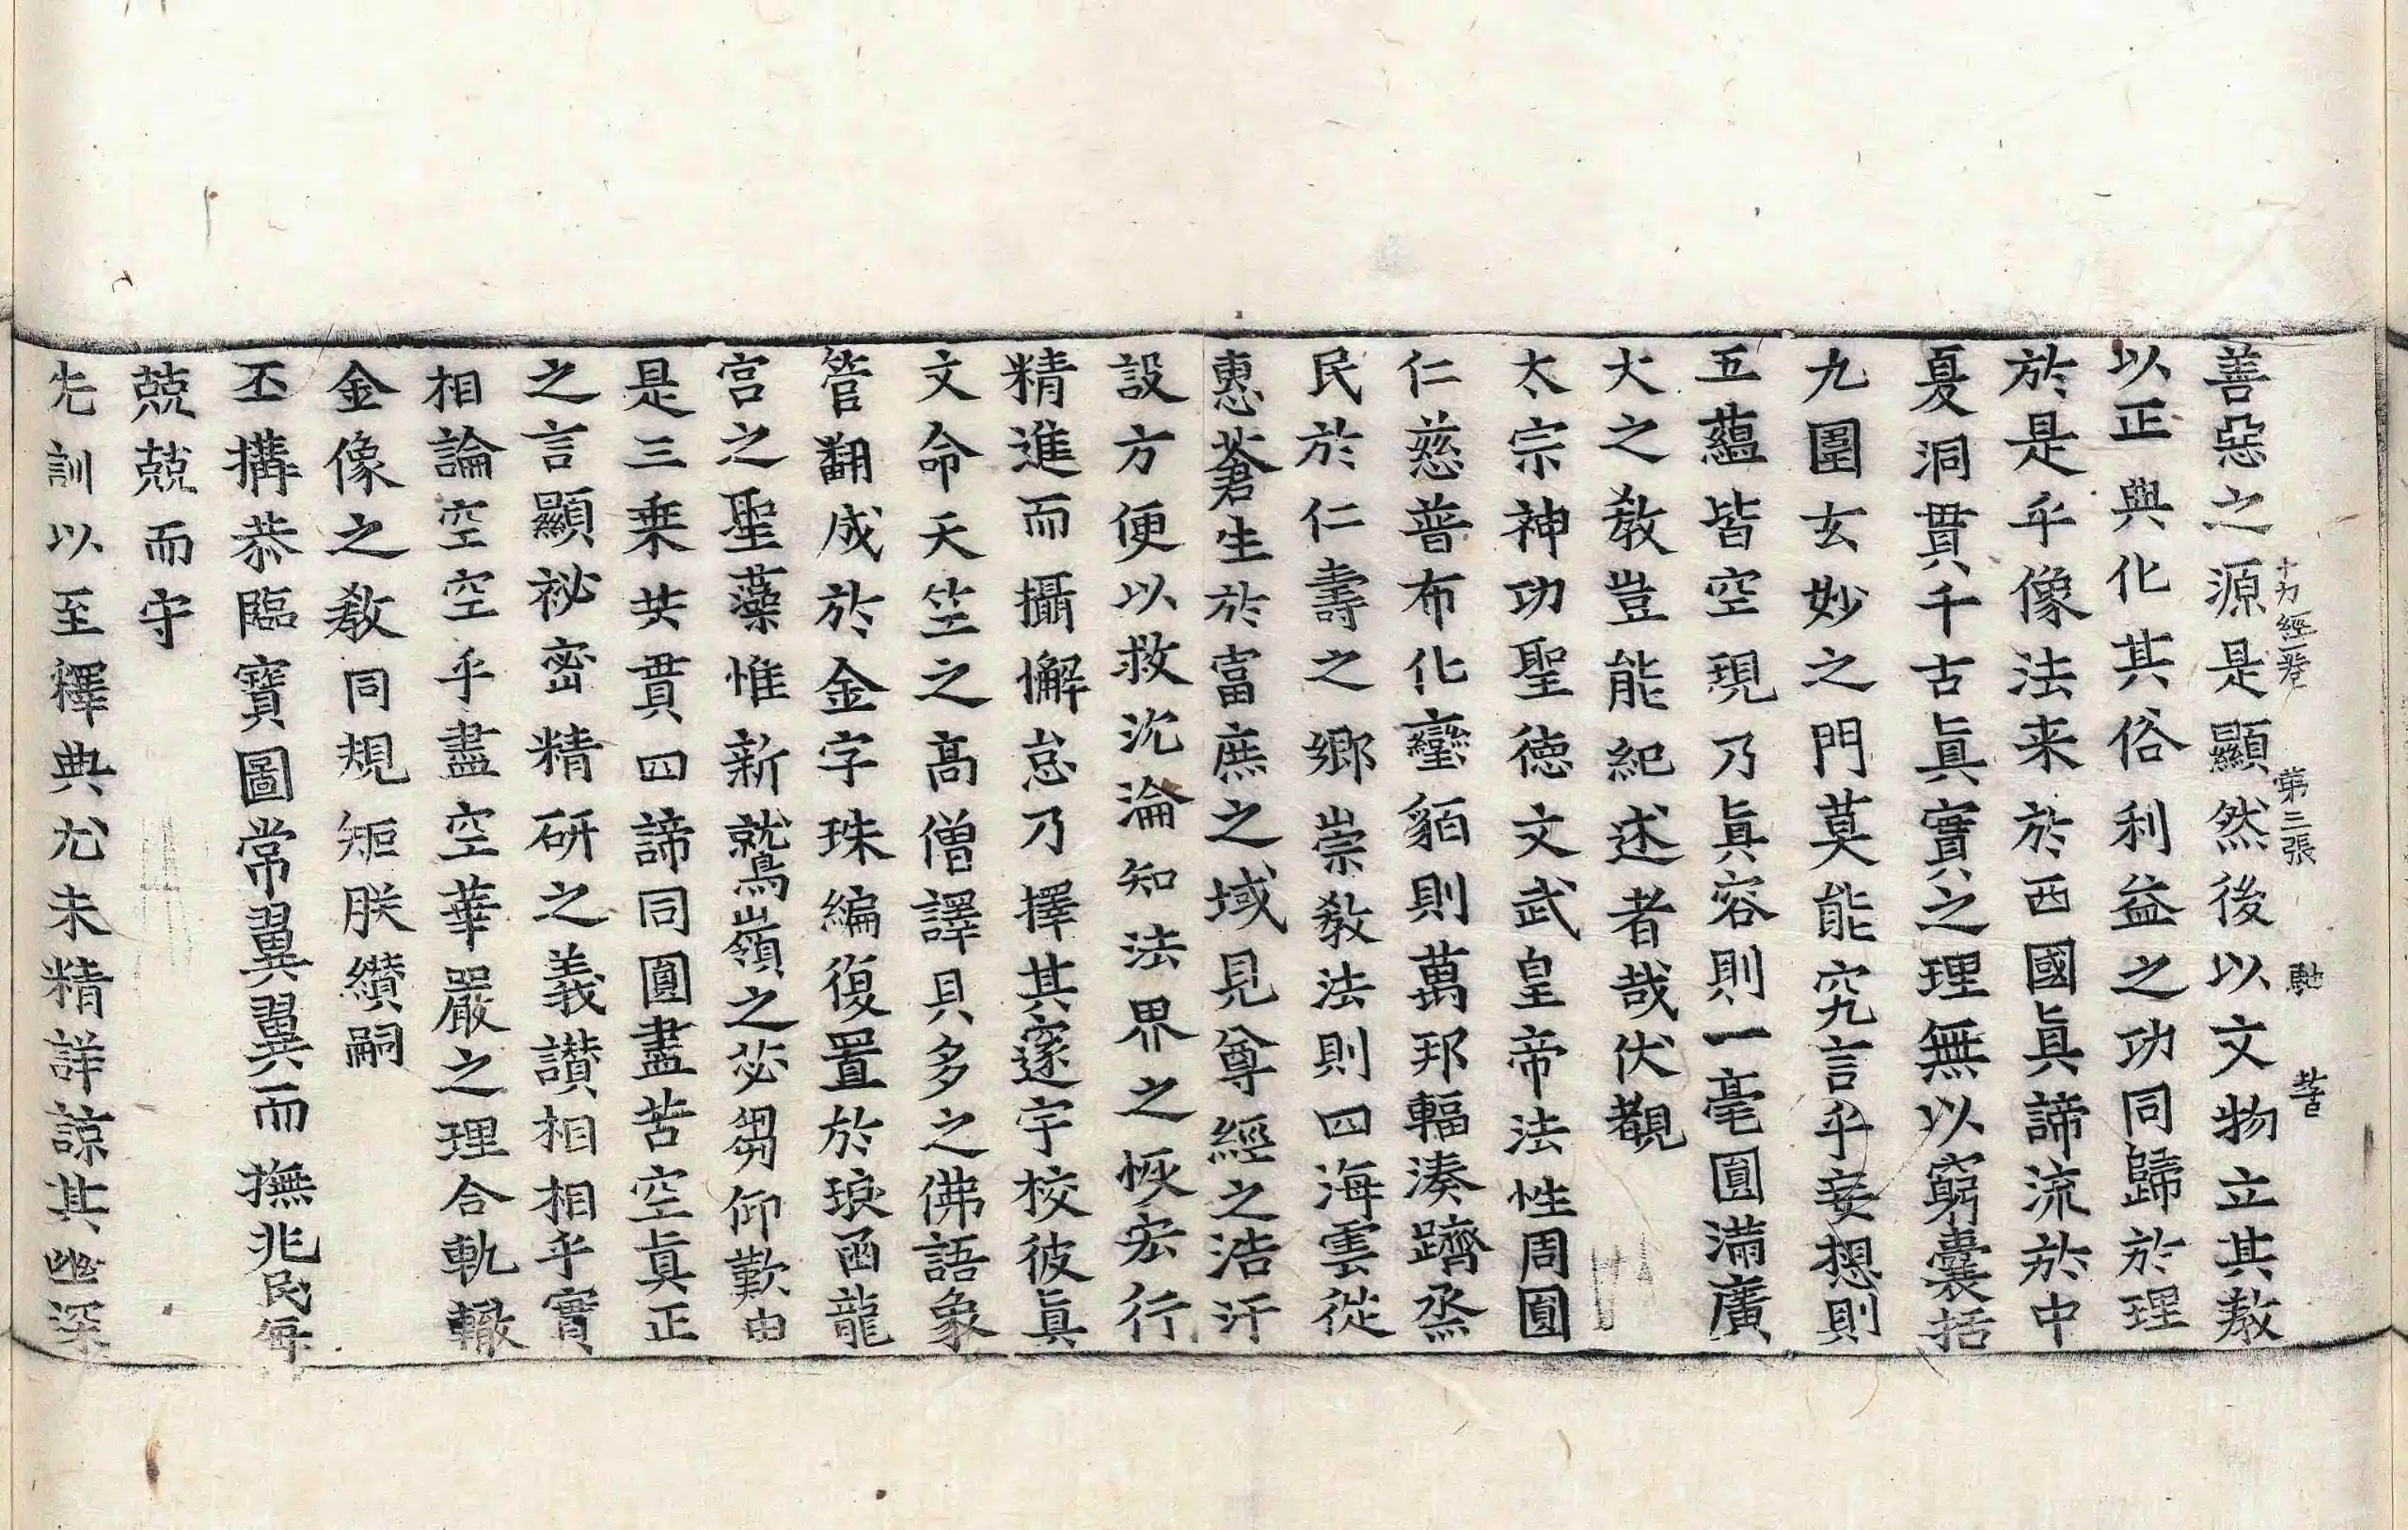 十力經一卷 第三張 馳 昔
善惡之源是顯然後以文物立其教
以正典化其俗利益之功同歸於理
於是乎像法来於西國眞諦流於中
夏洞貫千古眞實之理無以窮囊括
九圍玄妙之門莫能究言乎妄想則
五蘊皆空現乃眞容則一毫圓滿廣
大之教豈能紀述者哉伏覩
太宗神功聖德文武皇帝法性周圓
仁慈普布化蠻貊則萬邦輻湊躋烝
民於仁壽之鄉崇教法則四海雲從
惠蒼生於富庶之域見尊經之浩汗
設方便以救沈淪知法界之恢宏行
精進而攝懈怠乃擇其邃宇校彼眞
文命天竺之高僧譯貝多之佛語象
管翻成於金字珠編復置於琅函龍
宮之聖藻惟新鷲嶺之苾芻仰歎由
是三乗共貫四諦同圓盡苦空眞正
之言顯祕密精研之義讚相相乎實
相論空空乎盡空華嚴之理合軌轍
金像之教同規矩朕纘嗣
丕搆恭臨寶圖常翼翼而撫兆民每
兢兢而守
先訓以至釋典尤未精詳諒其幽深